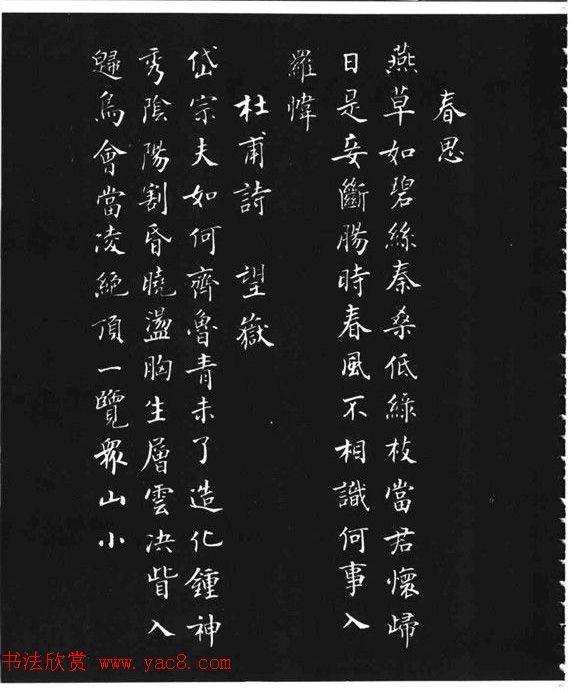 春思
燕草如碧絲秦桑低綠枝當君懷歸
日是妾斷腸時春風不相識何事入
羅幃
杜甫詩 望嶽
岱宗夫如何齊魯青未了造化鍾神
秀陰陽割昏曉盪胸生層雲決眥入
歸鳥會當凌絕頂一覽眾山小
书法欣赏 www.yac8.com